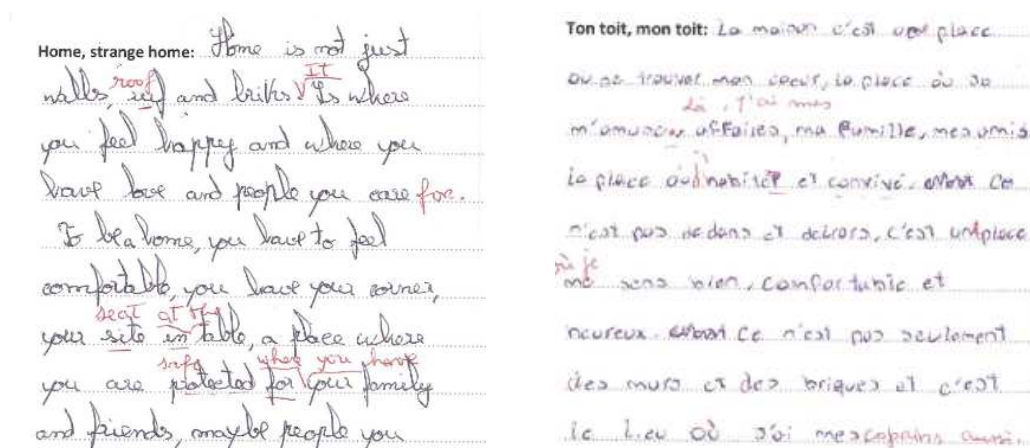 Home, strange home: Home is not just
roof It
walls, and briks. Is where
you feel happy and where you
have love and people you care for.
To be a home, you have to feel
comfortable, you have your corner,
seat at the
your site in table, a place where
safe where you have
you are protected for your family
and friends, maybe people you
Ton toit, mon toit: La maison c'est place
ou se trouver mon coeur, la place où
là, J'ai mes
m'amuse affaires, ma famille, mes amis
la place où habiter et convive. Ce
n'est pas dedans et dehors, c'est place
où je
me sens bien, confortable et
heureux. Ce n'est pas seulement
des murs et des briques et c'est
le lieu où j'ai mes copains aussi.